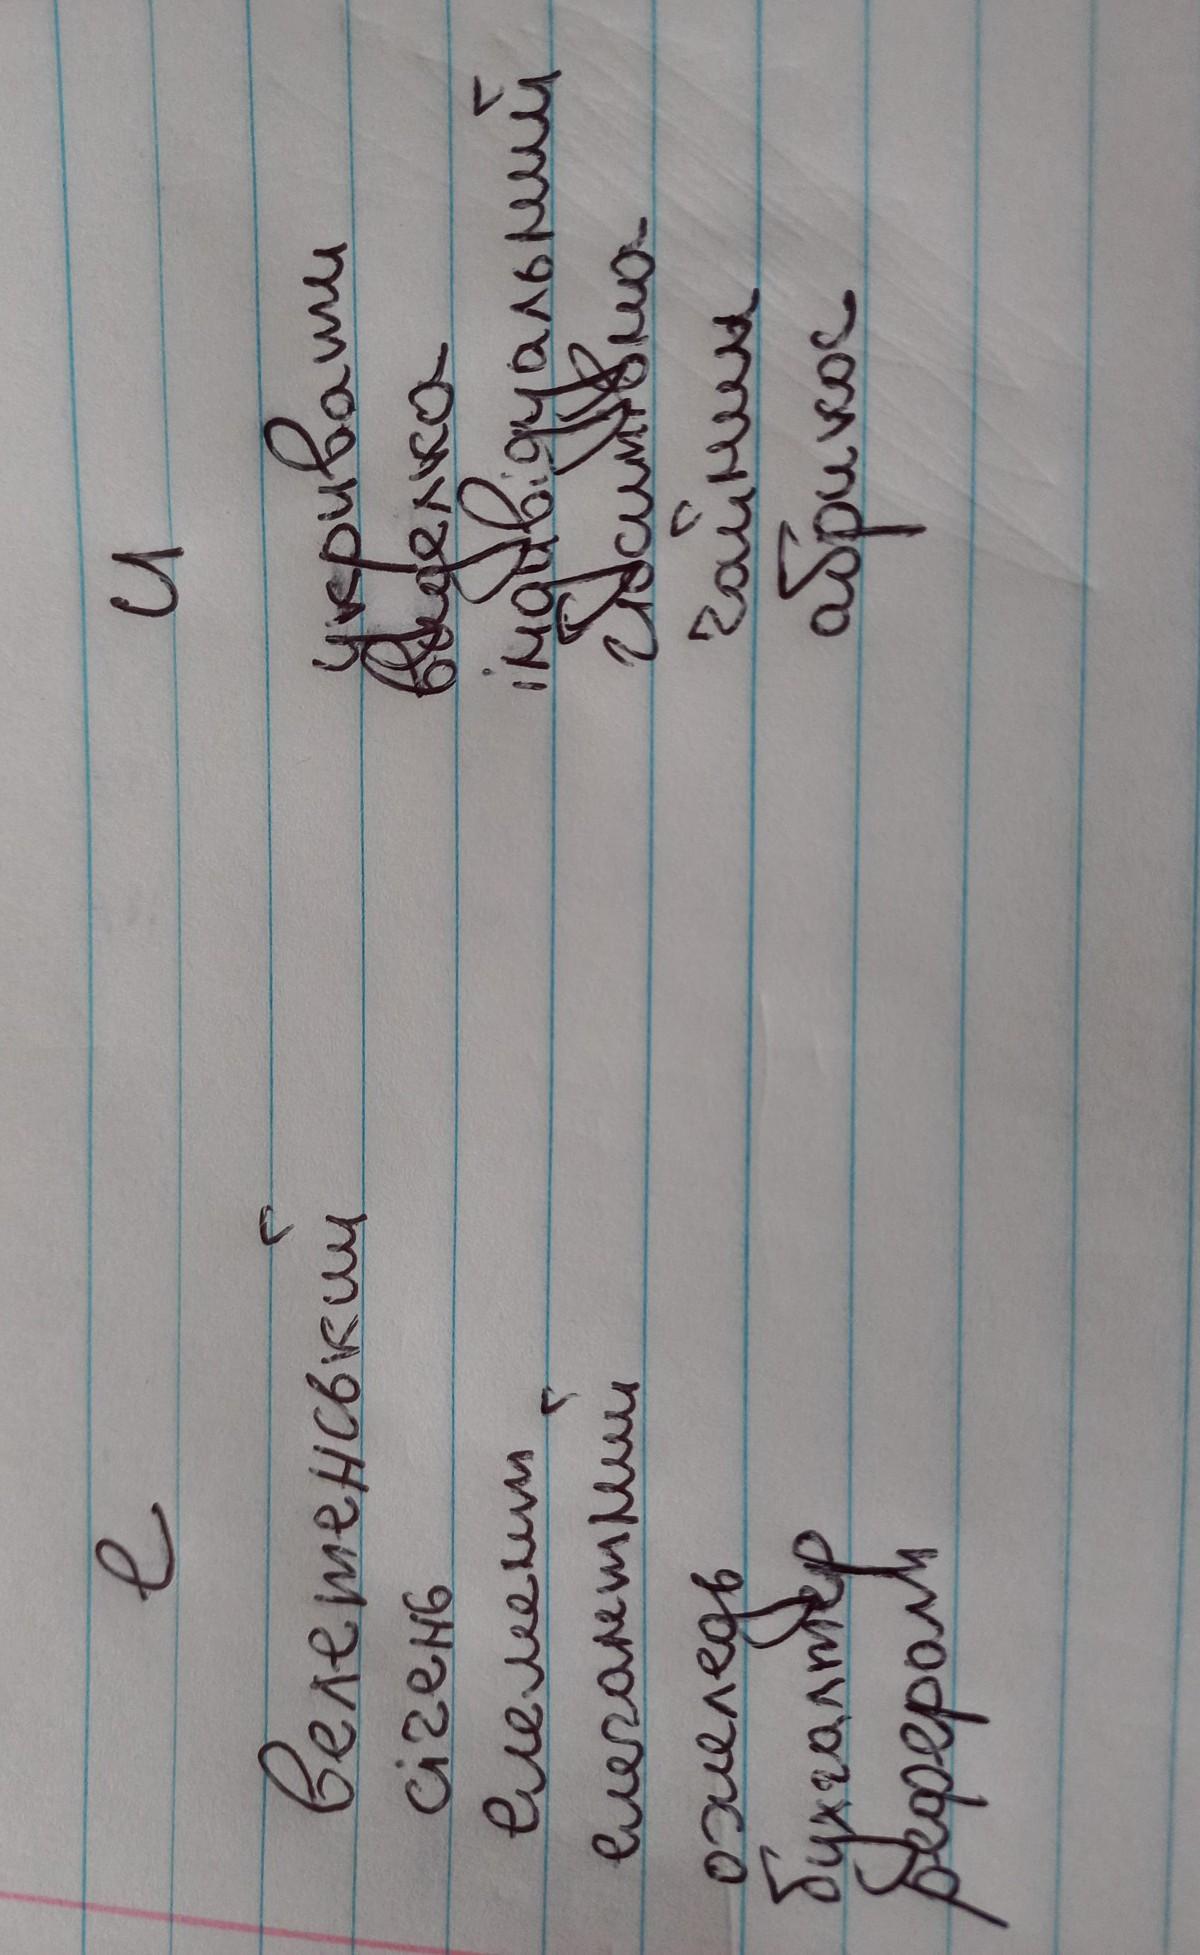 е
велетенський
січень
елемент
елегантний
ожеледь
бухгалтер
реферат
и
укривати
виделка
індивідуальний
чайник
абрикос